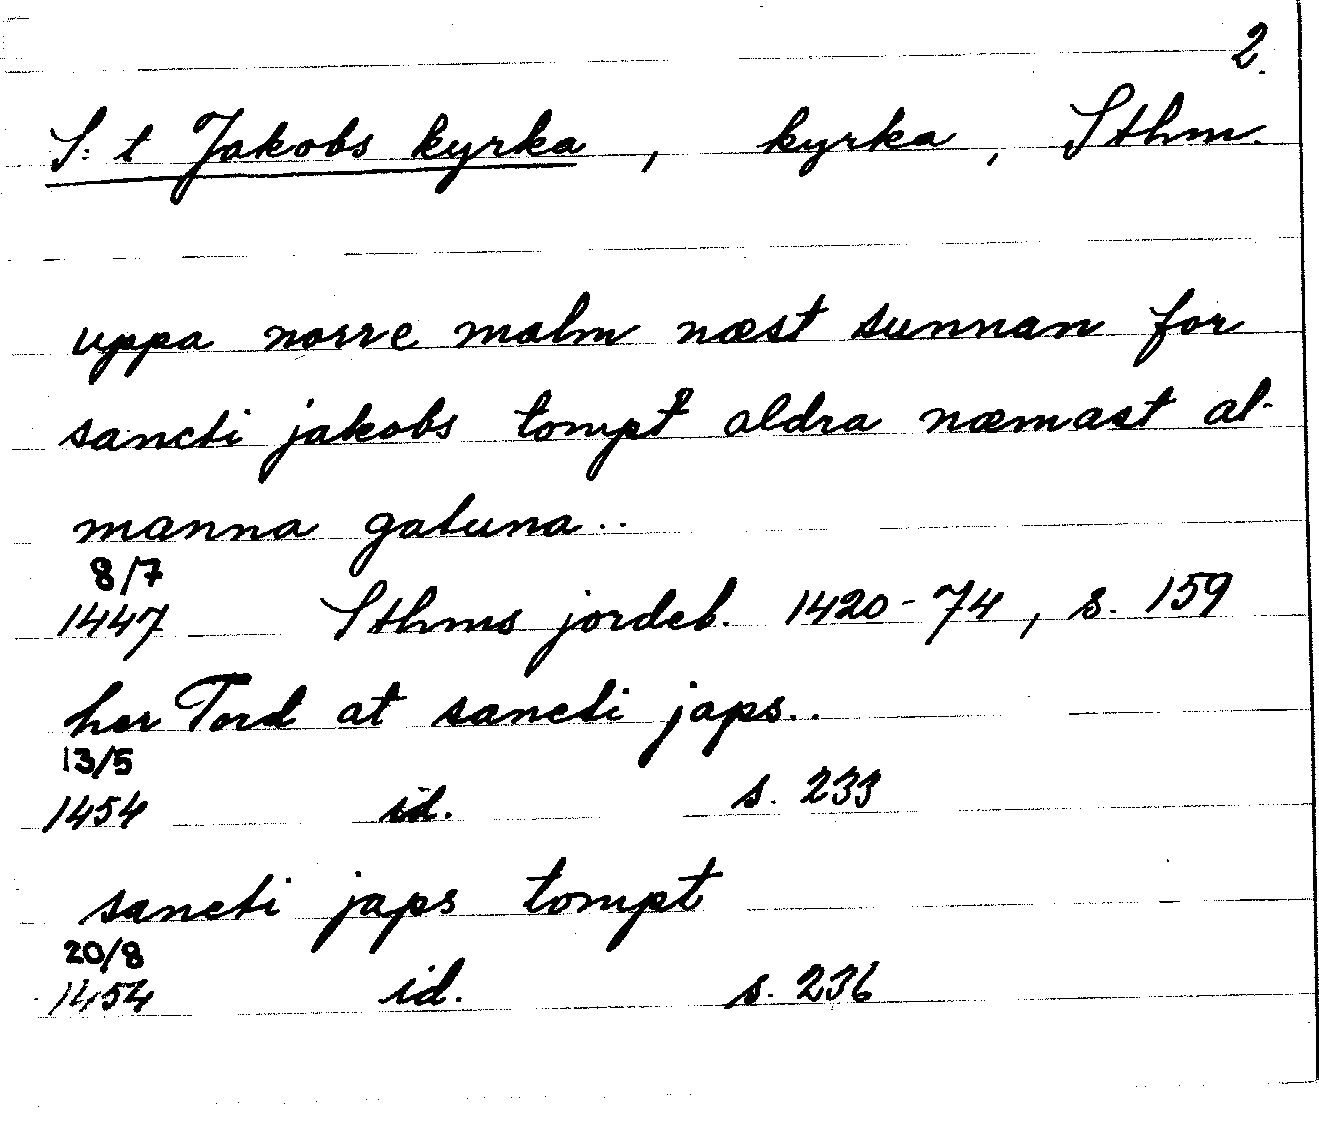 2.
S:t Jakobs kyrka, kyrka, Sthm.
uppa norre malm næst sunnan for
sancti jakobs tompt aldra næmast al-
manna gatuna..
8/7
1447 Sthms jordeb. 1420-74, s. 159
her Tord at sancti japs..
13/5
1454 id. s. 233
sancti japs tompt
20/8
1454 id. s. 236